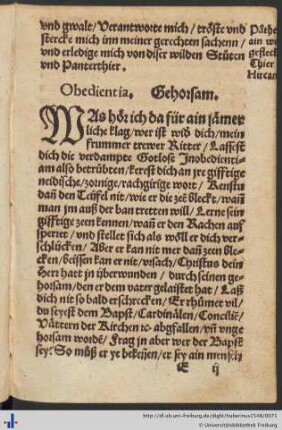 vnd gwalt / Verantworte mich / tröste vnd
stercke mich inn meiner gerechten sachenn /
vnd erledige mich von diser wilden Stüten
vnd Panterthier.
Obedientia. Gehorsam.
WAs hör ich da für ain jämer
liche klag / wer ist wid dich / mein
frummer trewer Ritter / Lassest
dich die verdampte Gotloß Inobedienti-
am also betrüben / kerest dich an jre gifftige
neidische / zornige / rachgirige wort / Kenstu
dañ den Teüfel nit / wie er die zeē bleckt / wañ
man jm auß der ban tretten will / Lerne sein
gifftige zeen kennen / wañ er den Rachen auff
sperret / vnd stellet sich als wöll er dich ver-
schlücken / Aber er kan nit mer dañ zeen ble-
cken / beissen kan er nit / vrsach / Christus dein
Herr hatt jn überwunden / durch seinen ge-
horsam / den er dem vater gelaistet hat / Laß
dich nit so bald erschrecken / Er rhümet vil /
du seyest dem Bapst / Cardinälen / Concilië /
Vättern der Kirchen ꝛc. abgfallen / vñ vnge
horsam wordē / Frag jn aber wer der Bapst
sey: So müß er ye bekeñen / er sey ain mensch
E ij
Pāthe
ain wi
gefleck
Thier
Hircan
http://dl.ub.uni-freiburg.de/diglit/huberinus1546/0071
© Universitätsbibliothek Freiburg